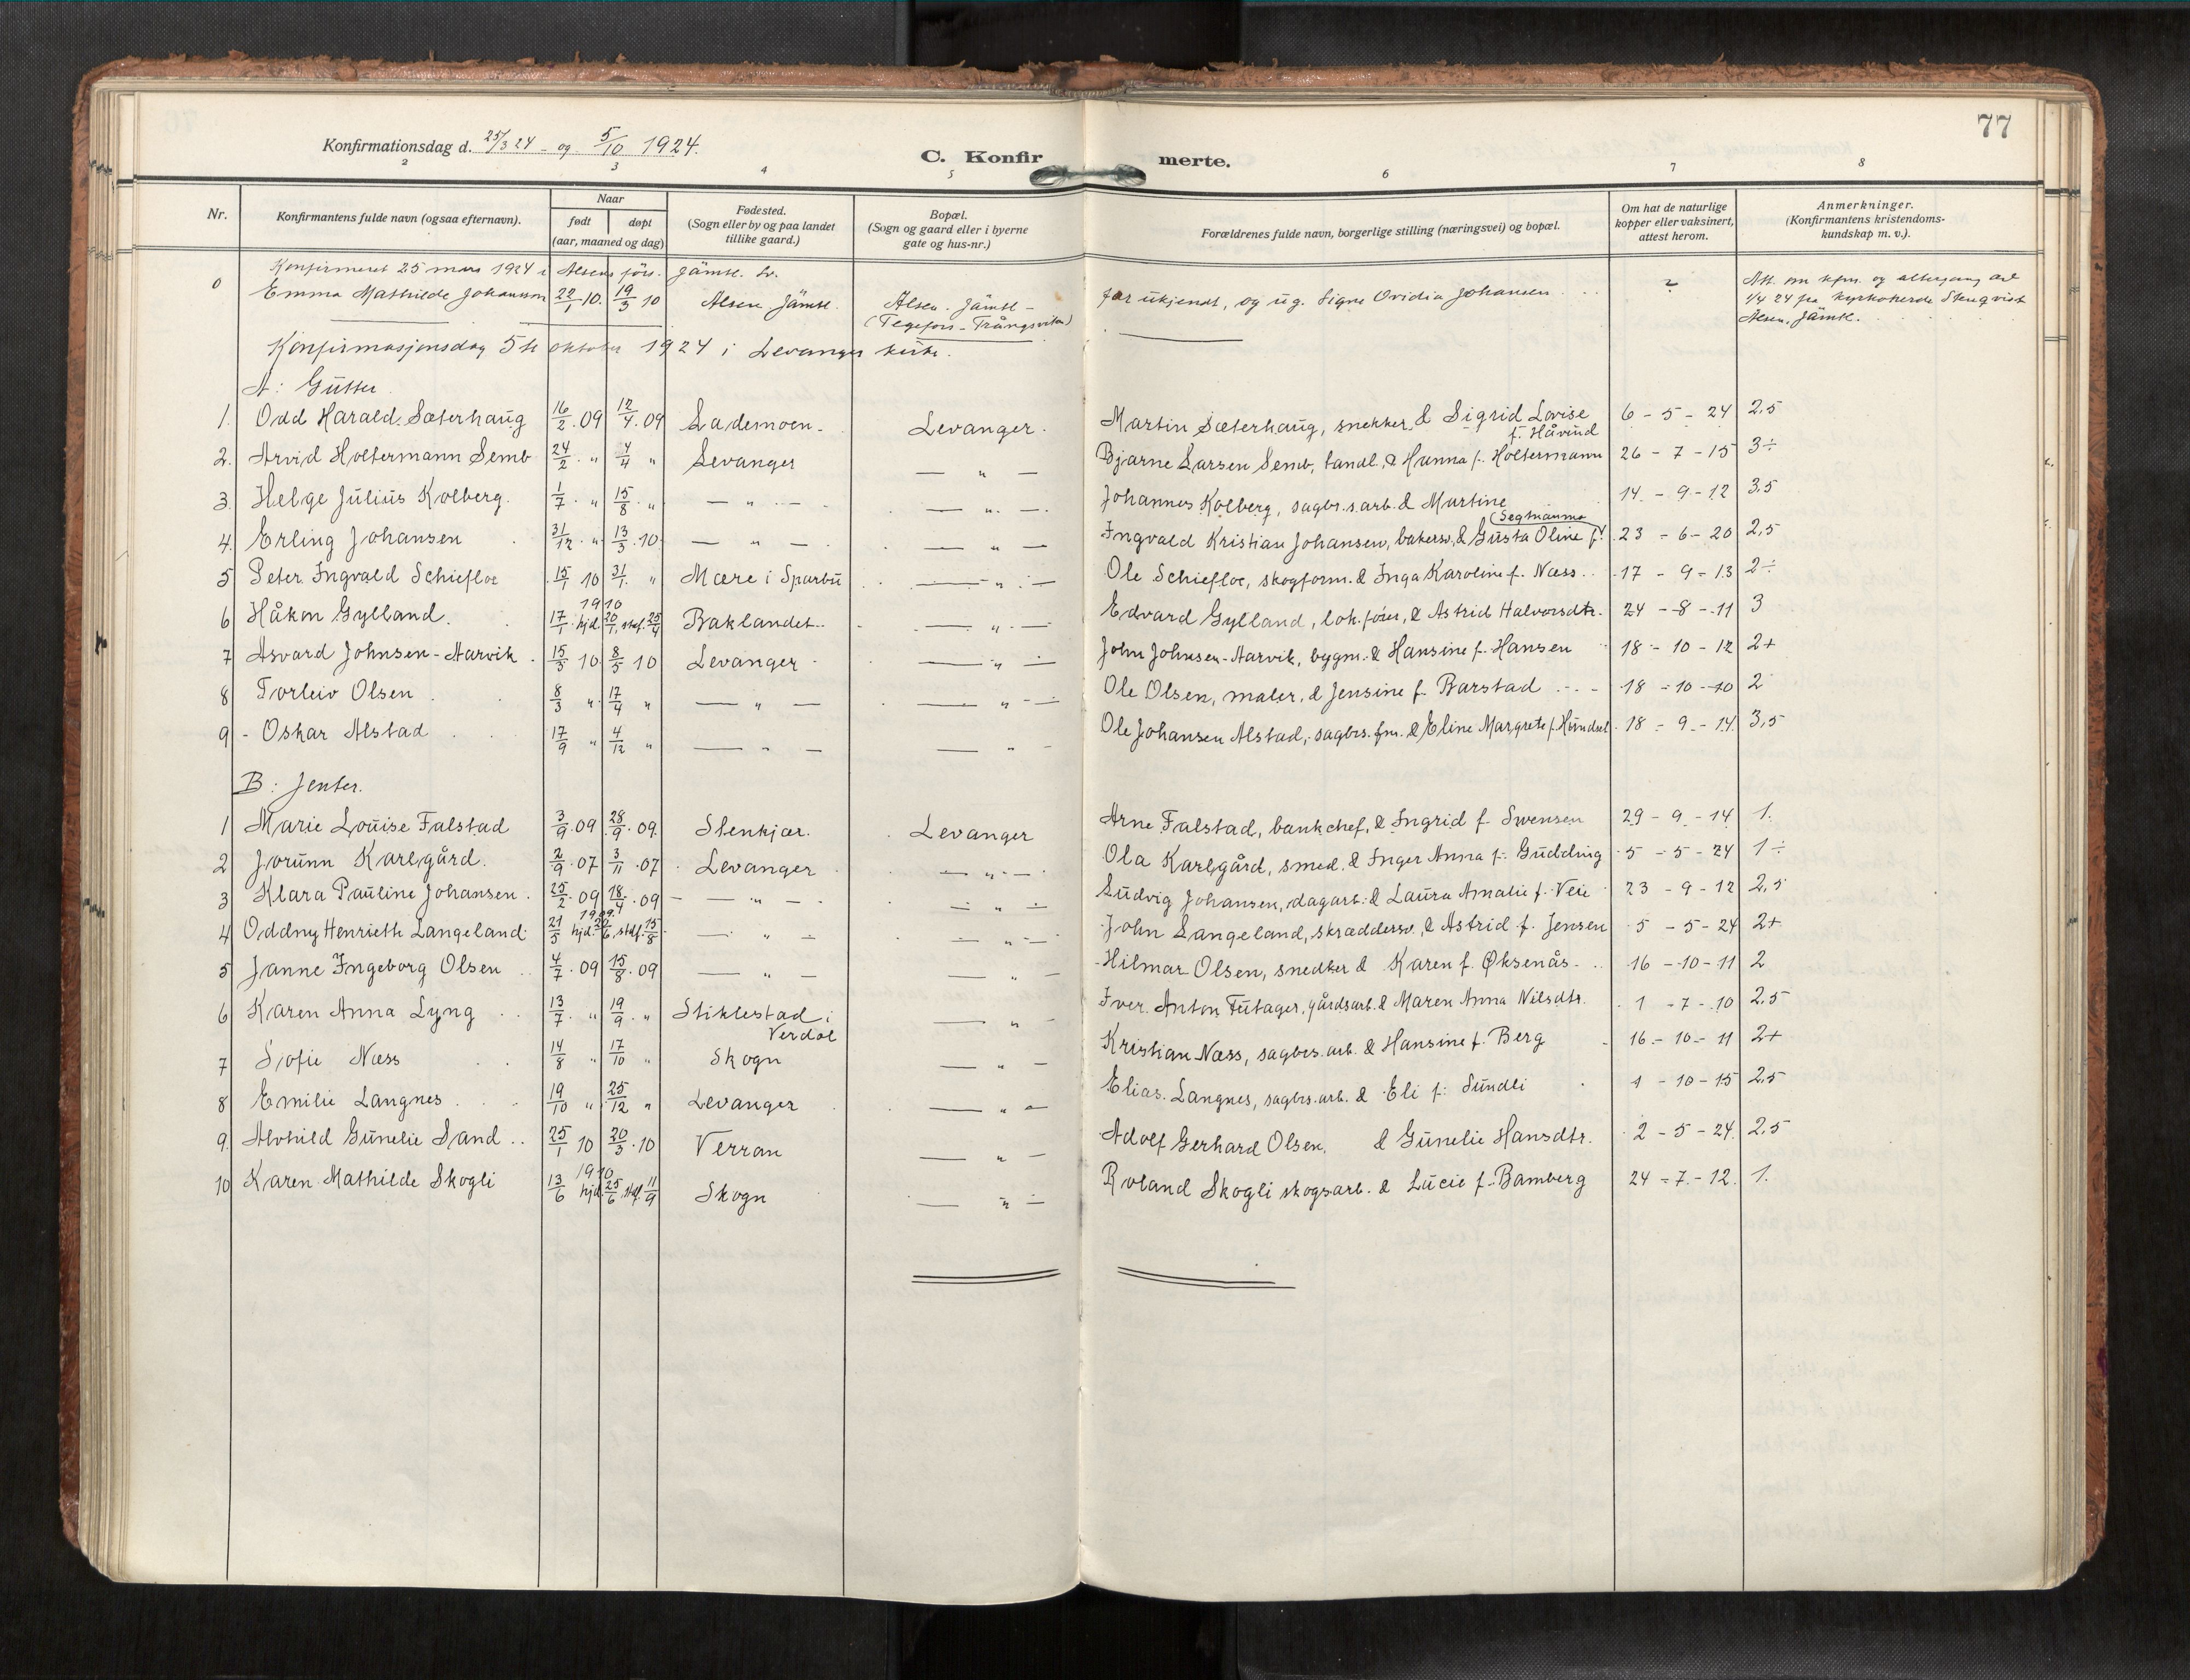 77
Konfirmationsdag d. 25/3 24 - og 5/10 1924.
C. Konfirmerte.
2 3 4 5 6 7 8
Nr.
Konfirmantens fulde navn (ogsaa efternavn).
Naar
født døpt
(aar, maaned og dag)
Fødested.
(Sogn eller by og paa landet
tillike gaard.)
Bopæl.
(Sogn og gaard eller i byerne
gate og hus-nr.)
Forældrenes fulde navn, borgerlige stilling (næringsvei) og bopæl.
Om hat de naturlige
kopper eller vaksinert,
attest herom.
Anmerkninger.
(Konfirmantens kristendoms-
kundskap m. v.).
Konfirmeret 25 mars 1924 i Alsens förs. Jämtl. Sv.
0 Emma Mathilde Johansen 22/1 10. 19/3 10 Alsen Jämtl. Alsen. Jämtl - far ukjendt, og ug. Signe Ovidia Johansen ?
(Tegefors - Trångsviken)
Att. om kfm. og altergang av
1/4 24 fra kyrkoherde
Alsen, Jämtl.
Konfirmasjonsdag 5te oktober 1924 i Levanger kirke.
A: Gutter
1. Odd Harald Sæterhaug 16/2 . 09 12/4 . 09 Lademoen. Levanger. Martin Sæterhaug, snekker, & Sigrid Lovise f. Håvind 6 - 5 - 24 2,5
2. Arvid Holtermann Semb 24/2 . " 4/4 " Levanger — " — Bjarne Larsen Semb, handl. & Hanna f. Holtermann 26 - 7 - 15 3÷
3. Helge Julius Kolberg. 1/7 . " 15/8 . " — " — — " — Johannes Kolberg, sagbr.s.arb. & Martine 14 - 9 - 12 3,5
4. Erling Johansen 31/12 . " 13/3 . 10 — " — — " — Ingvald Kristian Johansen, bakersv. & Gusta Oline f. (Segtnanma 23 - 6 - 20 2,5
5 Peter Ingvald Schiefloe 15/1 10 31/1 . " Mære i Sparbu — " — Ole Schiefloe, skogform. & Inga Karoline f. Næss 17 - 9 - 13 2÷
1910
6 Håkon Gylland. 17/1 . hjd. 20/1, stdf. 25/4 Baklandet — " — Edvard Gylland, lok.fører, & Astrid Halvorsdtr. 24 - 8 - 11 3
7 Asvard Johnsen-Aarvik 15/3 10 8/5 10 Levanger — " — John Johnsen-Aarvik, bygm. & Hansine f. Hansen 18 - 10 - 12 2+
8 Torleiv Olsen 8/3 " 17/4 " — " — — " — Ole Olsen, maler, & Jensine f. Barstad 18 - 10 - 10 2
9 - Oskar Alstad 17/9 " 4/12 " — " — — " — Ole Johansen Alstad, sagbrs.fm. & Eline Margrete f. Hundsel 18 - 9 - 14 3,5
B: Jenter.
1 Marie Louise Falstad 3/9 . 09 28/9 . 09 Stenkjær. Levanger Arne Falstad, bankchef, & Ingrid f. Svensen 29 - 9 - 14 1.
2 Jorunn Karlgård. 2/9 . 07 3/11 . 07 Levanger — " — Ola Karlgård, smed. & Inger Anna f. Gudding 5 - 5 - 24 1÷
3 Klara Pauline Johansen. 25/2 . 09 18/4 . 09 — " — — " — Ludvig Johansen, dagarb. & Laura Amalie f. Veie 23 - 9 - 12 2,5
1909
4 Oddny Henriette Langeland 21/5 hjd. 26/6, stdf. 15/8 — " — — " — John Langeland, skræddersv. & Astrid f. Jensen 5 - 5 - 24 2+
5 Janne Ingeborg Olsen 4/7 . 09 15/8 . 09 — " — — " — Hilmar Olsen, snedker & Karen f. Øksenås 16 - 10 - 11 2
6 Karen Anna Lyng 13/7 . " 19/9 . " Stiklestad i Verdal — " — Iver Anton Fütager, gårdsarb. & Maren Anna Nilsdtr. 1 - 7 - 10 2,5
7 Sofie Næss 14/8 " 17/10 " Skogn — " — Kristian Næss, sagbrs.arb. & Hansine f. Berg 16 - 10 - 11 2+
8 Emilie Langnes 19/10 " 25/12 " Levanger — " — Elias Langnes, sagbrs.arb. & Eli f. Sundli 1 - 10 - 15 2,5
9. Alvhild Gunelie Sand 25/1 10 20/3 . 10 Verran — " — Adolf Gerhard Olsen, & Gunelie Hansdtr. 2 - 5 - 24 2,5
1910
10 Karen Mathilde Skogli 13/6 hjd. 25/6, stdf. 11/9 Skogn — " — Roland Skogli skogsarb. & Lucie f. Bamberg 24 - 7 - 12 1.